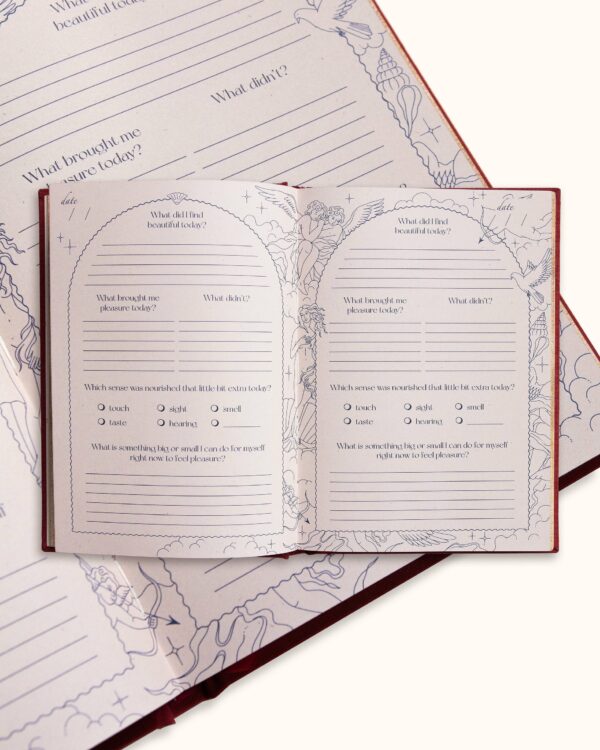 What
beautiful today?
What didn't?
What brought me
pleasure today?
date
/ /
What did I find
beautiful today?
What brought me
pleasure today?
What didn't?
Which sense was nourished that little bit extra today?
touch
sight
smell
taste
hearing
What is something big or small I can do for myself
right now to feel pleasure?
date
/ /
What did I find
beautiful today?
What brought me
pleasure today?
What didn't?
Which sense was nourished that little bit extra today?
touch
sight
smell
taste
hearing
What is something big or small I can do for myself
right now to feel pleasure?